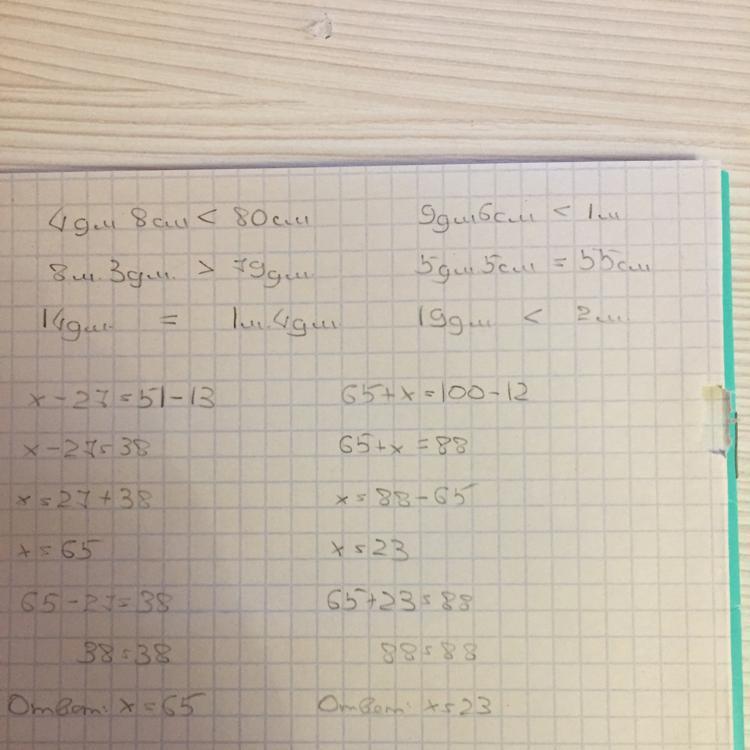 4дм 8см < 80см
8м. 3дм. > 79дм
14дм. = 1м. 4дм.
9дм 6см < 1м
5дм 5см = 55см
19дм < 2м.
x - 27 = 51 - 13
x - 27 = 38
x = 27 + 38
x = 65
65 - 27 = 38
38 = 38
Ответ: x = 65
65 + x = 100 - 12
65 + x = 88
x = 88 - 65
x = 23
65 + 23 = 88
88 = 88
Ответ: x = 23